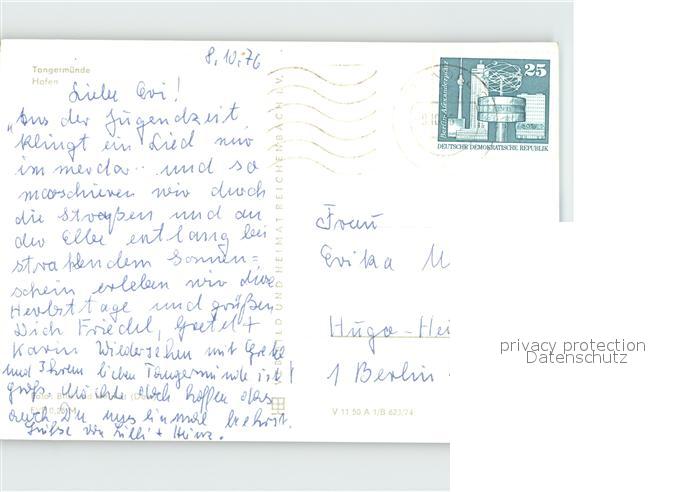 8.10.76
Tangermünde
Hafen
Liebe Evi!
"Aus der Jugendzeit
klingt ein Lied mir
immerdar.. und so
marschieren wir durch
die Straßen und an
der Elbe entlang bei
strahlendem Sonnen=
schein erleben wir diese
Herbsttage und grüßen
Dich Friedel, Gretel +
Karin Wiedersehen mit Gretel
und Ihrem lieben Tangermünde ist
groß. Möchte doch hoffen das
auch Du uns einmal beehrst.
Grüße von Lilli + Heinz.
BILD UND HEIMAT REICHENBACH I.V.
25
Berlin-Alexanderplatz
DEUTSCHE DEMOKRATISCHE REPUBLIK
Frau
Erika M
Hugo-Hei
1 Berlin
V 11 50 A 1/B 623/74
privacy protection
Datenschutz